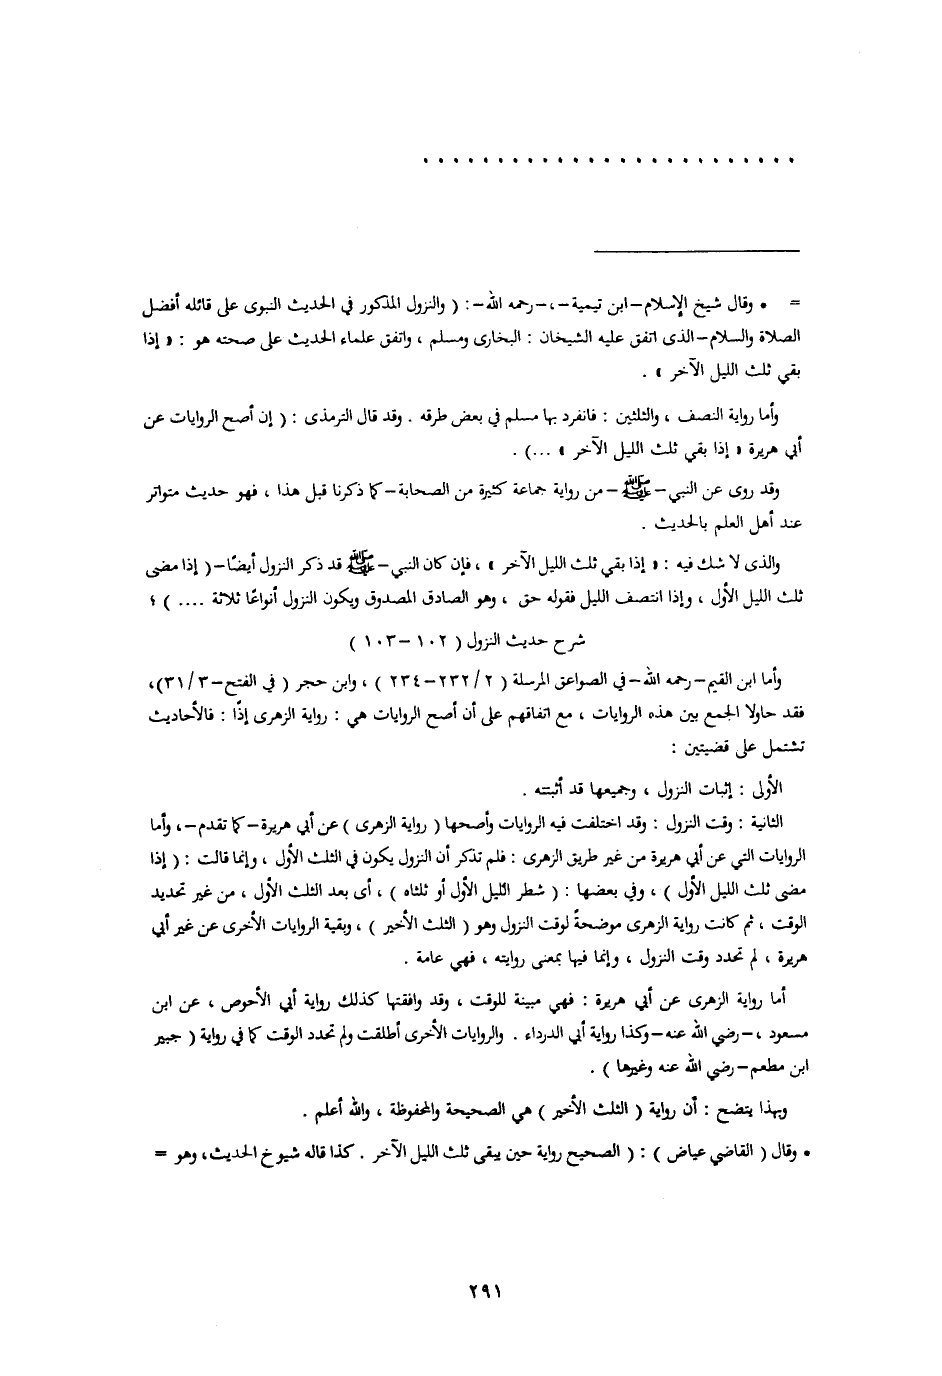 . . . . . . . . . . . . . . . . . . . . . . . . .
= • وقال شيخ الإسلام–ابن تيمية–،–رحمه الله–: ( والنزول المذكور في الحديث النبوى على قائله أفضل
الصلاة والسلام–الذى اتفق عليه الشيخان : البخارى ومسلم ، واتفق علماء الحديث على صحته هو : « إذا
بقي ثلث الليل الآخر » .
وأما رواية النصف ، والثلثين : فانفرد بها مسلم في بعض طرقه . وقد قال الترمذى : ( إن أصح الروايات عن
أبي هريرة « إذا بقي ثلث الليل الآخر » ...) .
وقد روى عن النبي–ﷺ–من رواية جماعة كثيرة من الصحابة–كما ذكرنا قبل هذا ، فهو حديث متواتر
عند أهل العلم بالحديث .
والذى لا شك فيه : « إذا بقي ثلث الليل الآخر » ، فإن كان النبي–ﷺ قد ذكر النزول أيضًا–( إذا مضى
ثلث الليل الأول ، وإذا انتصف الليل فقوله حق ، وهو الصادق المصدوق ويكون النزول أنواعًا ثلاثة .... ) ؛
شرح حديث النزول ( ١٠٢ –١٠٣ )
وأما ابن القيم–رحمه الله–في الصواعق المرسلة ( ٢٣٢/٢–٢٣٤ ) ، وابن حجر ( في الفتح–٣١/٣)،
فقد حاولا الجمع بين هذه الروايات ، مع اتفاقهم على أن أصح الروايات هي : رواية الزهرى إذًا : فالأحاديث
تشتمل على قضيتين :
الأولى : إثبات النزول ، وجميعها قد أثبتته .
الثانية : وقت النزول : وقد اختلفت فيه الروايات وأصحها ( رواية الزهرى ) عن أبي هريرة–كما تقدم–، وأما
الروايات التي عن أبي هريرة من غير طريق الزهرى : فلم تذكر أن النزول يكون في الثلث الأول ، وإنما قالت : ( إذا
مضى ثلث الليل الأول ) ، وفي بعضها : ( شطر الليل الأول أو ثلثاه ) ، أى بعد الثلث الأول ، من غير تحديد
الوقت ، ثم كانت رواية الزهرى موضحةً لوقت النزول وهو ( الثلث الأخير ) ، وبقية الروايات الأخرى عن غير أبي
هريرة ، لم تحدد وقت النزول ، وإنما فيها بمعنى روايته ، فهي عامة .
أما رواية الزهرى عن أبي هريرة : فهي مبينة للوقت ، وقد وافقتها كذلك رواية أبي الأحوص ، عن ابن
مسعود ،–رضي الله عنه–وكذا رواية أبي الدرداء . والروايات الأخرى أطلقت ولم تحدد الوقت كما في رواية ( جبير
ابن مطعم–رضي الله عنه وغيرها ) .
وبهذا يتضح : أن رواية ( الثلث الأخير ) هي الصحيحة والمحفوظة ، والله أعلم .
• وقال ( القاضي عياض ) : ( الصحيح رواية حين يبقى ثلث الليل الآخر . كذا قاله شيوخ الحديث، وهو =
٢٩١